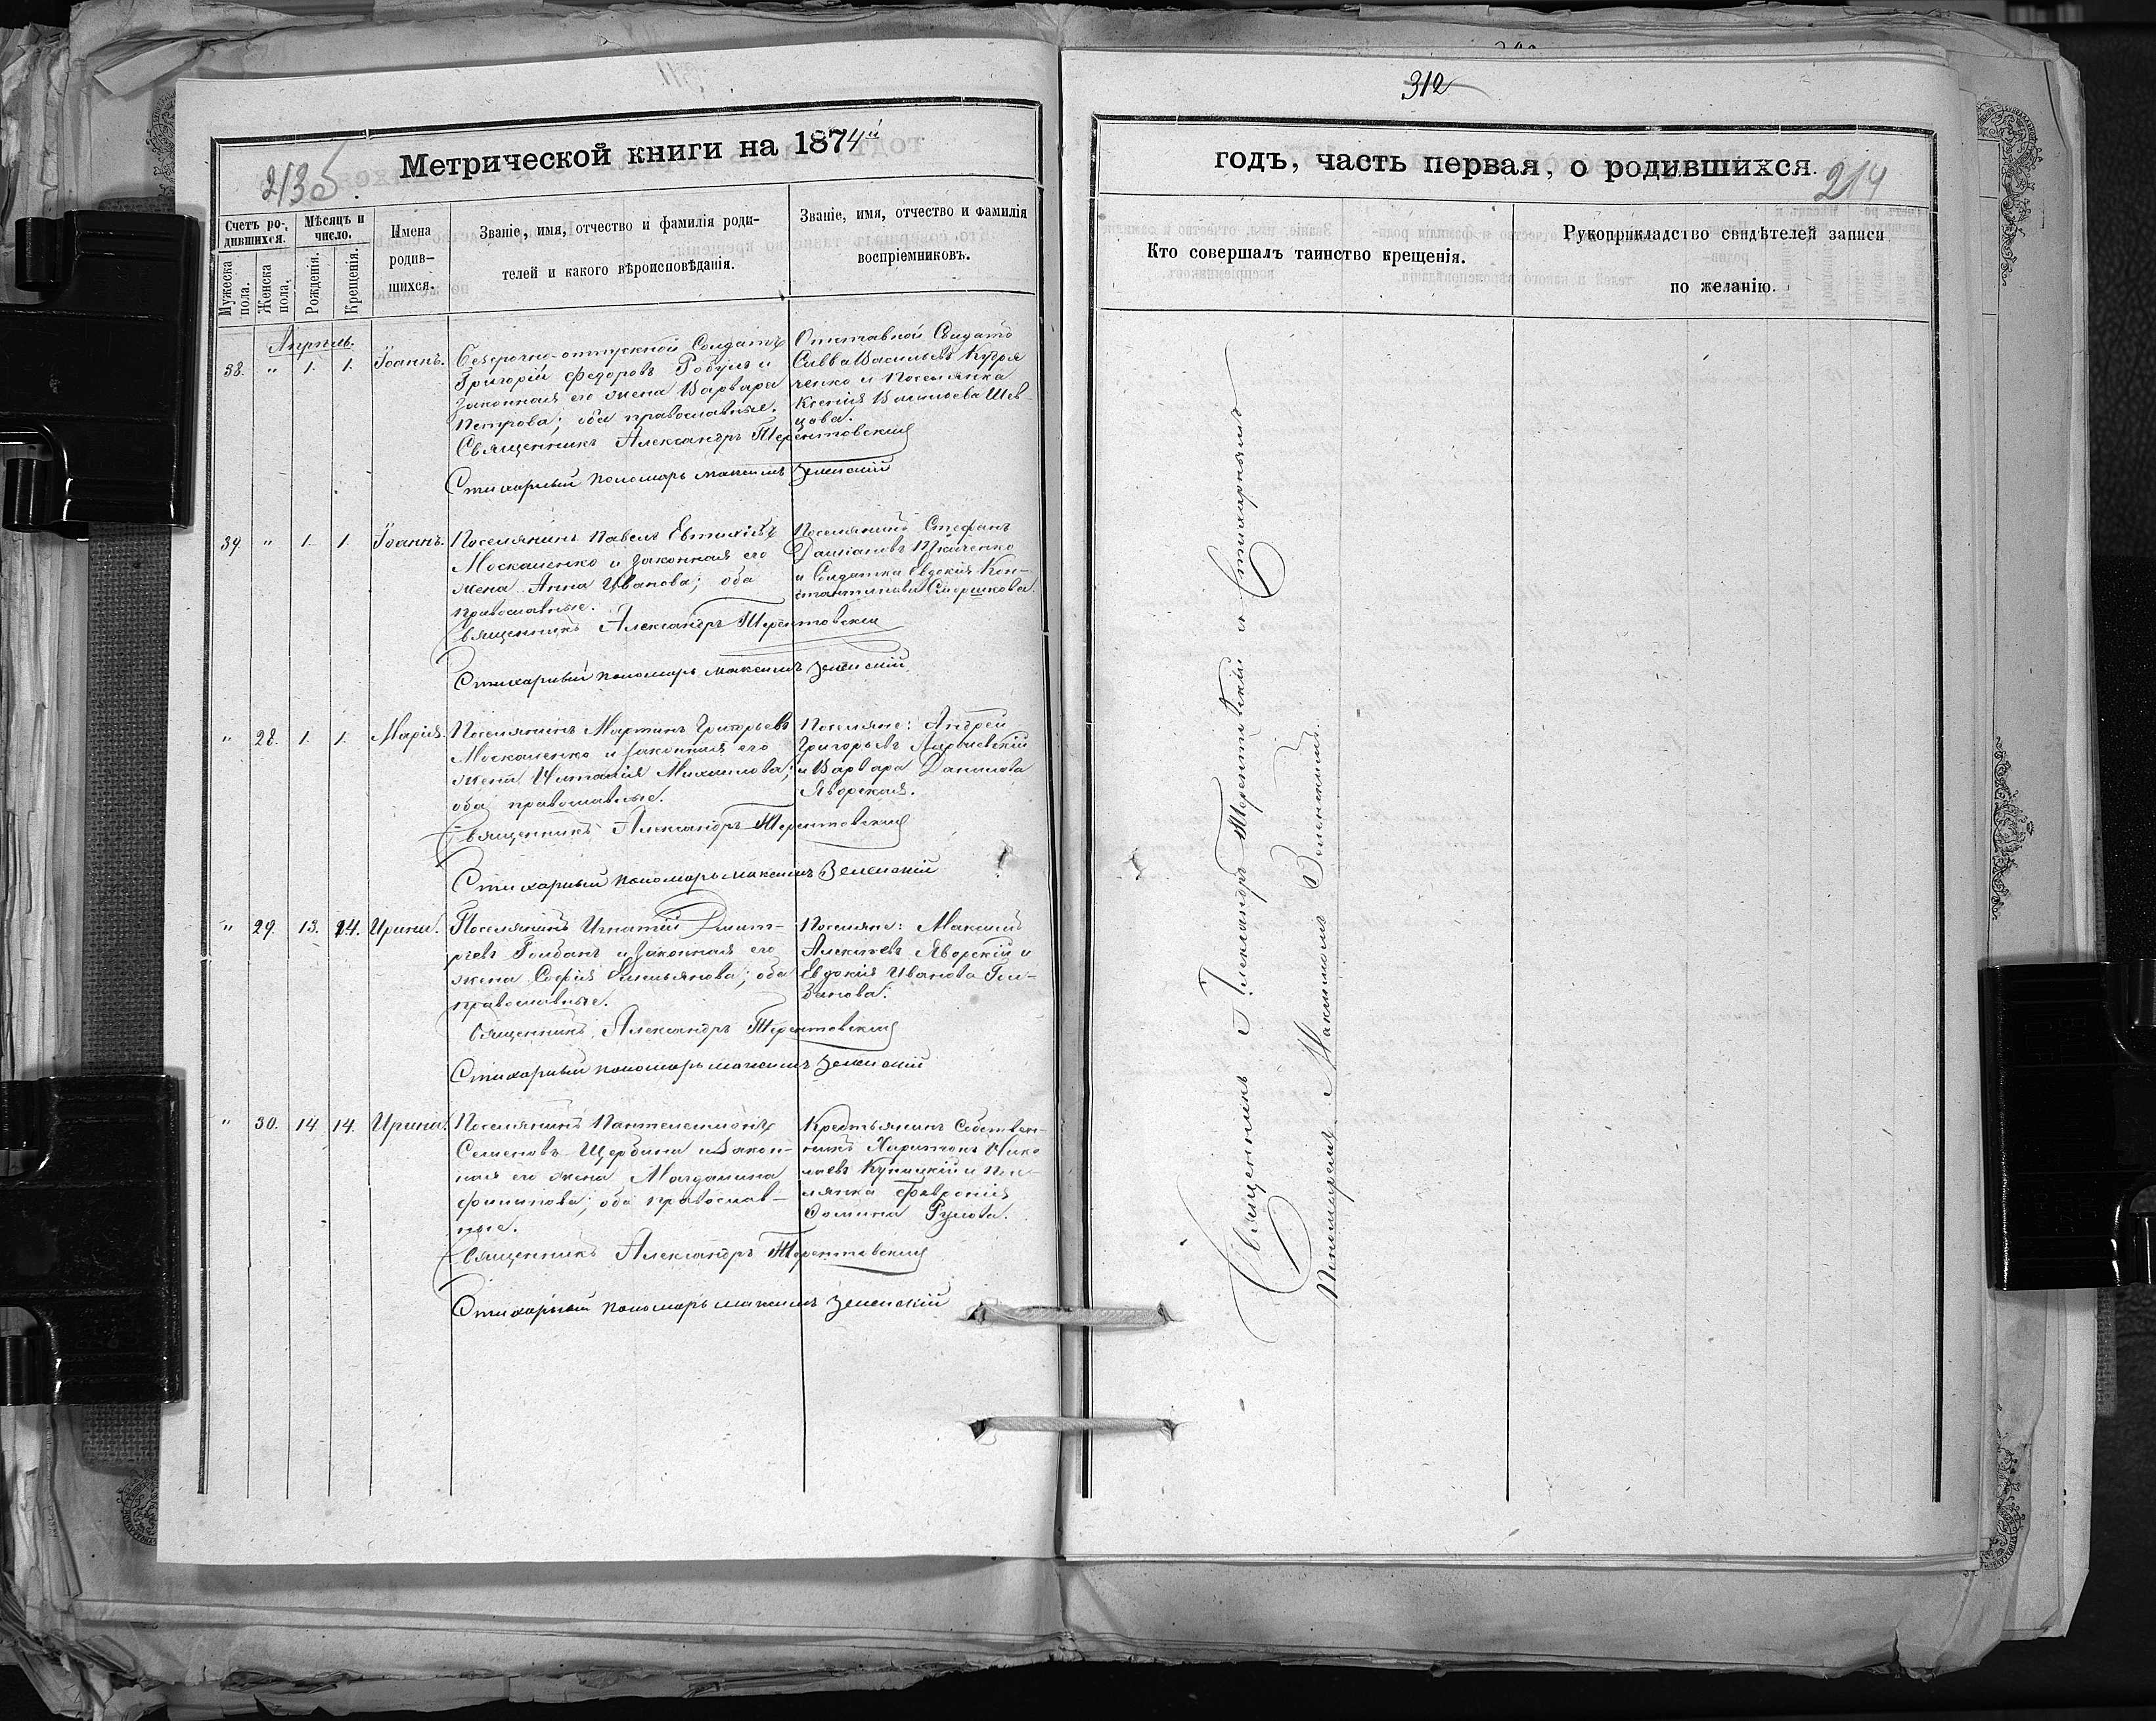 312
Метрической книги на 1874й
годъ, часть первая, о родившихся.
213 б.
214
Счетъ родившихся.
Мужеска пола.
Женска пола.
Мѣсяцъ и число.
Рожденія.
Крещенія.
Имена родившихся.
Званіе, имя, отчество и фамилія родителей и какого вѣроисповѣданія.
Званіе, имя, отчество и фамилія воспріемниковъ.
Кто совершалъ таинство крещенія.
Рукоприкладство свидѣтелей записи по желанію.
Апрѣль.
38. " 1. 1. Іоаннъ.
Безсрочно-отпускной Солдатъ
Григорій Федоровъ и
законная его жена Варвара
Петрова; оба православные.
Отставной Солдатъ
Савва Васильевъ
ченко и Поселянка
Ксенія Шев-
цова.
Священникъ Александръ Терентовскій
Стихарный пономарь Максимъ Зеленскій
39. " 1. 1. Іоаннъ.
Поселянинъ Павелъ Евтихіевъ
Москаленко и законная его
жена Анна Иванова; оба
православные.
Поселянинъ Стефанъ
Даміановъ Ткаченко
и Солдатка Евдокія Кон-
стантинова
Священникъ Александръ Терентовскій
Стихарный пономарь Максимъ Зеленскій
" 28. 1. 1. Марія.
Поселянинъ Мартинъ Григорьевъ
Москаленко и законная его
жена Наталія Михаилова;
оба православные.
Поселяне: Андрей
Григорьевъ
и Варвара Данилова
Яворская.
Священникъ Александръ Терентовскій
Стихарный пономарь Максимъ Зеленскій
" 29. 13. 14. Ирина.
Поселянинъ Игнатій Дмит-
ріевъ и законная его
жена Софія Емельянова; оба
православные.
Поселяне: Максимъ
Алексѣевъ Яворскій и
Евдокія Иванова
Священникъ Александръ Терентовскій
Стихарный пономарь Максимъ Зеленскій
" 30. 14. 14. Ирина.
Поселянинъ Пантелеимонъ
Семеновъ Щербина и закон-
ная его жена Магдалина
Филипова; оба православ-
ные.
Крестьянинъ Собствен-
никъ Харитонъ Нико
лаевъ и Посе-
лянка Февронія
Фомина
Священникъ Александръ Терентовскій
Стихарный пономарь Максимъ Зеленскій
Священникъ Александръ Терентовскій съ Стихарнымъ
Пономаремъ Максимомъ Зеленскимъ.